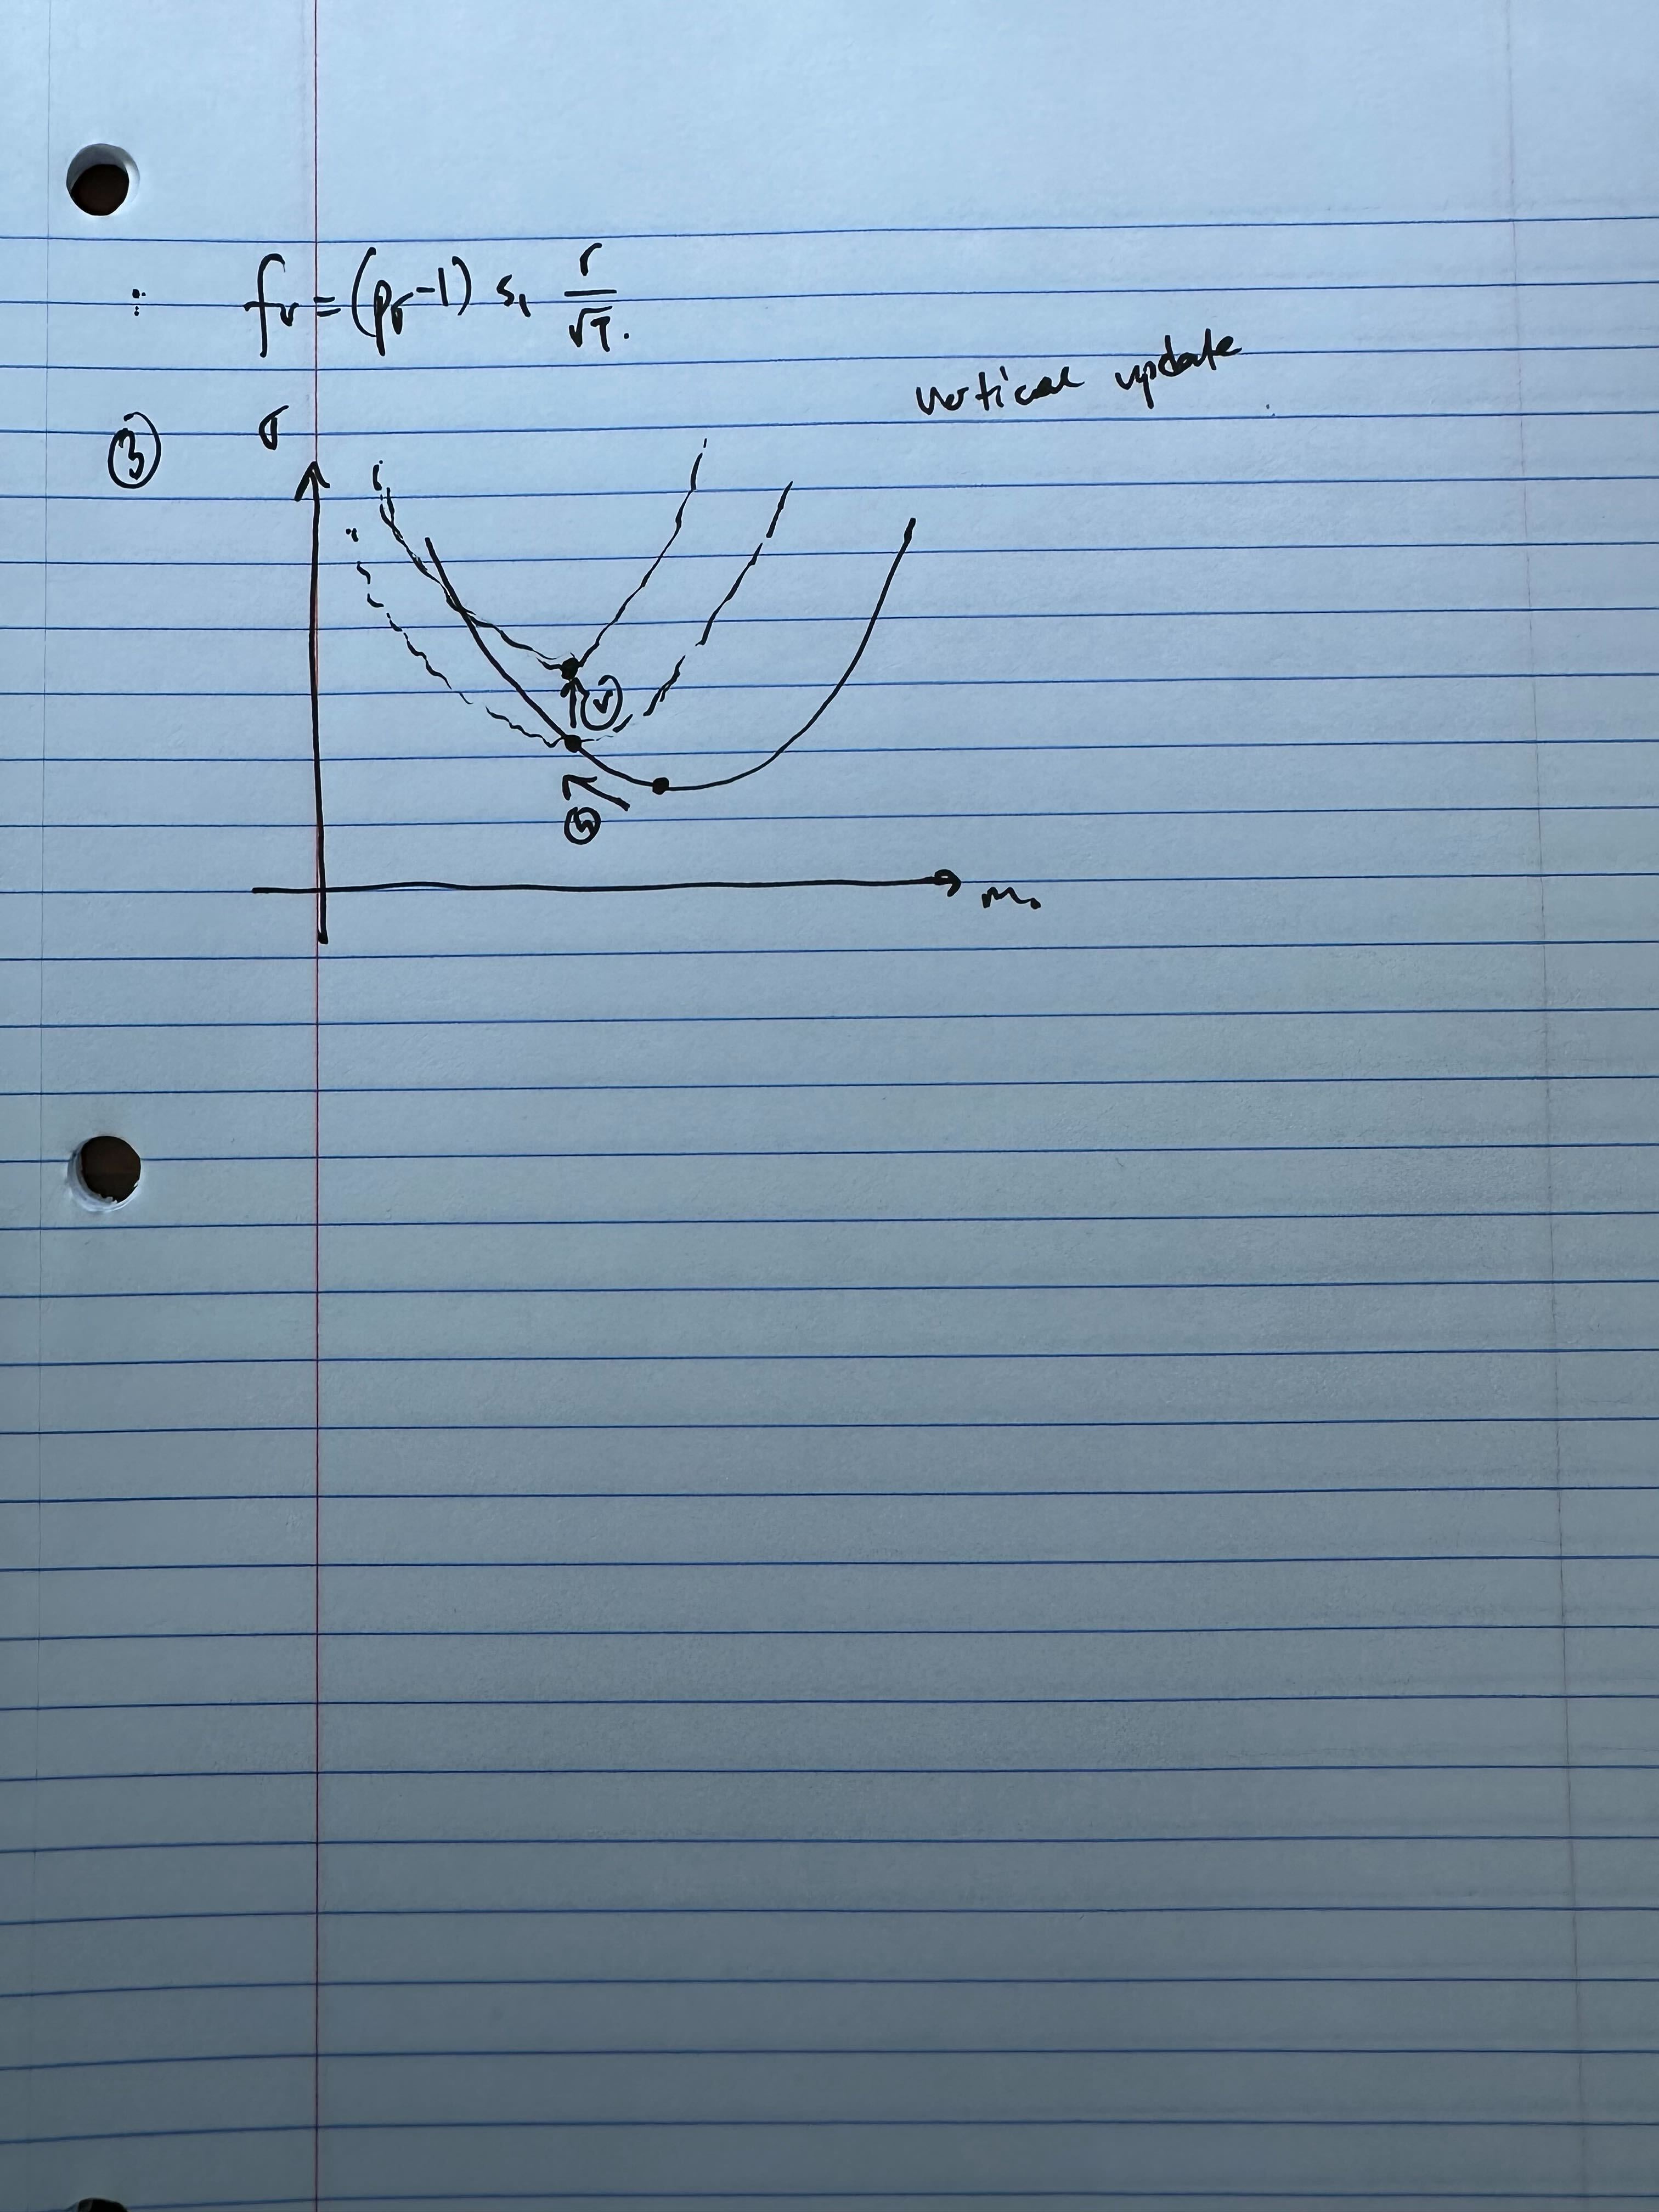 ∴ fv = (pσ-1) s₁ r/√T.
vertical update
③ σ
ⓥ
ⓗ
m₀